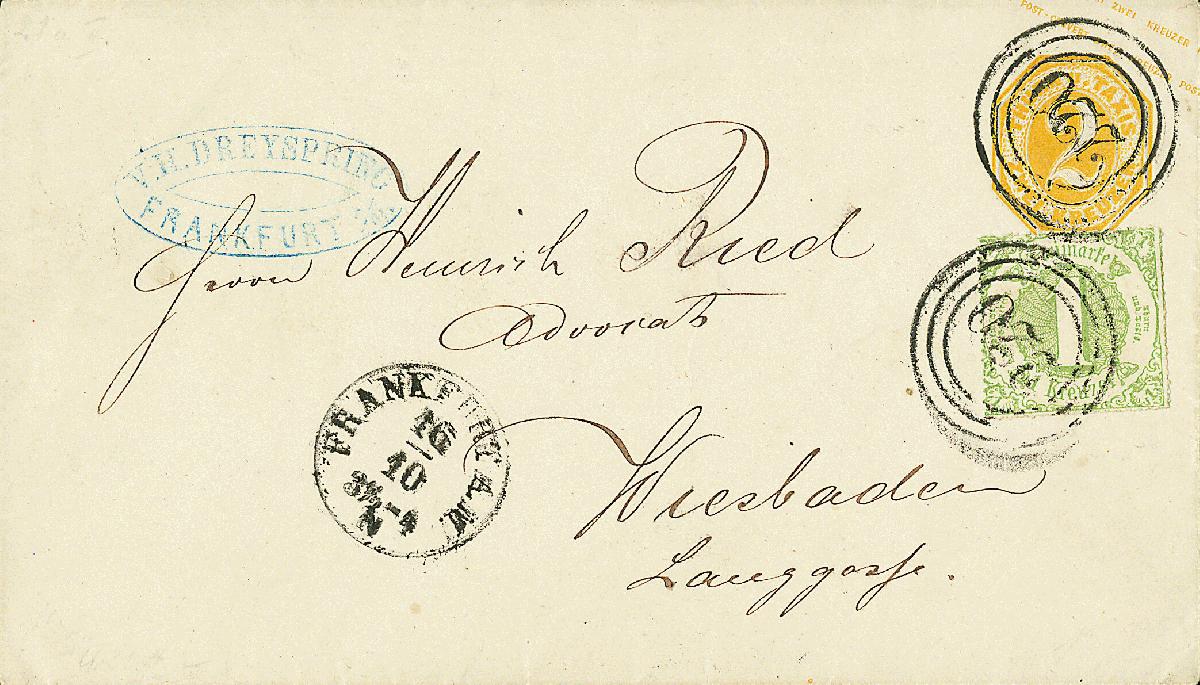 POST-COUVERT ZWEI KREUZER
TAXIS
2
ZWEI KREUZER
V.H.DREYSPRING
FRANKFURT a/M
Herrn Heinrich Ried
Advocat
Freimarke
1
Kreuzer
FRANKFURT A.M.
16
10
3½-4
N
Wiesbaden
Langgasse.